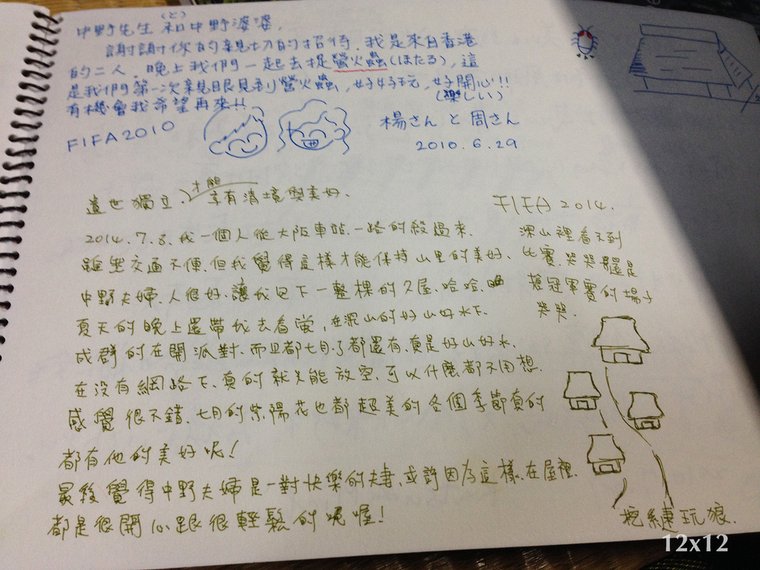 中野先生(と)和中野婆婆,
謝謝你的親切的招待,我是來自香港
的二人,晚上我們一起去捉螢火蟲(ほたる),這
是我們第一次親眼見到螢火蟲,好好玩,好開心!!
(楽しい)
有機會我希望再來!!
FIFA2010
楊さん と 周さん
2010.6.29
遺世獨立,才能享有清境與美好.
FIFA 2014.
2014.7.8.我一個人從大阪車站一路的殺過來.
雖然交通不便.但我覺得這樣才能保持山里的美好.
中野夫婦.人很好.讓我包下一整棵的久屋.哈哈.
夏天的晚上還帶我去看螢,在深山的好山好水下.
成群的在開派對.而且都七月了都還有.真是好山好水.
在沒有網路下.真的就只能放空.可以什麼都不用想.
感覺很不錯.七月的紫陽花也都超美的各個季節真的
都有他的美好呢!
最後覺得中野夫婦是一對快樂的夫妻,或許因為這樣.在屋裡.
都是很開心跟很輕鬆的喔!
深山裡看不到
比賽.哭哭
冠軍賽的場子
哭哭.
玩狼.
12x12